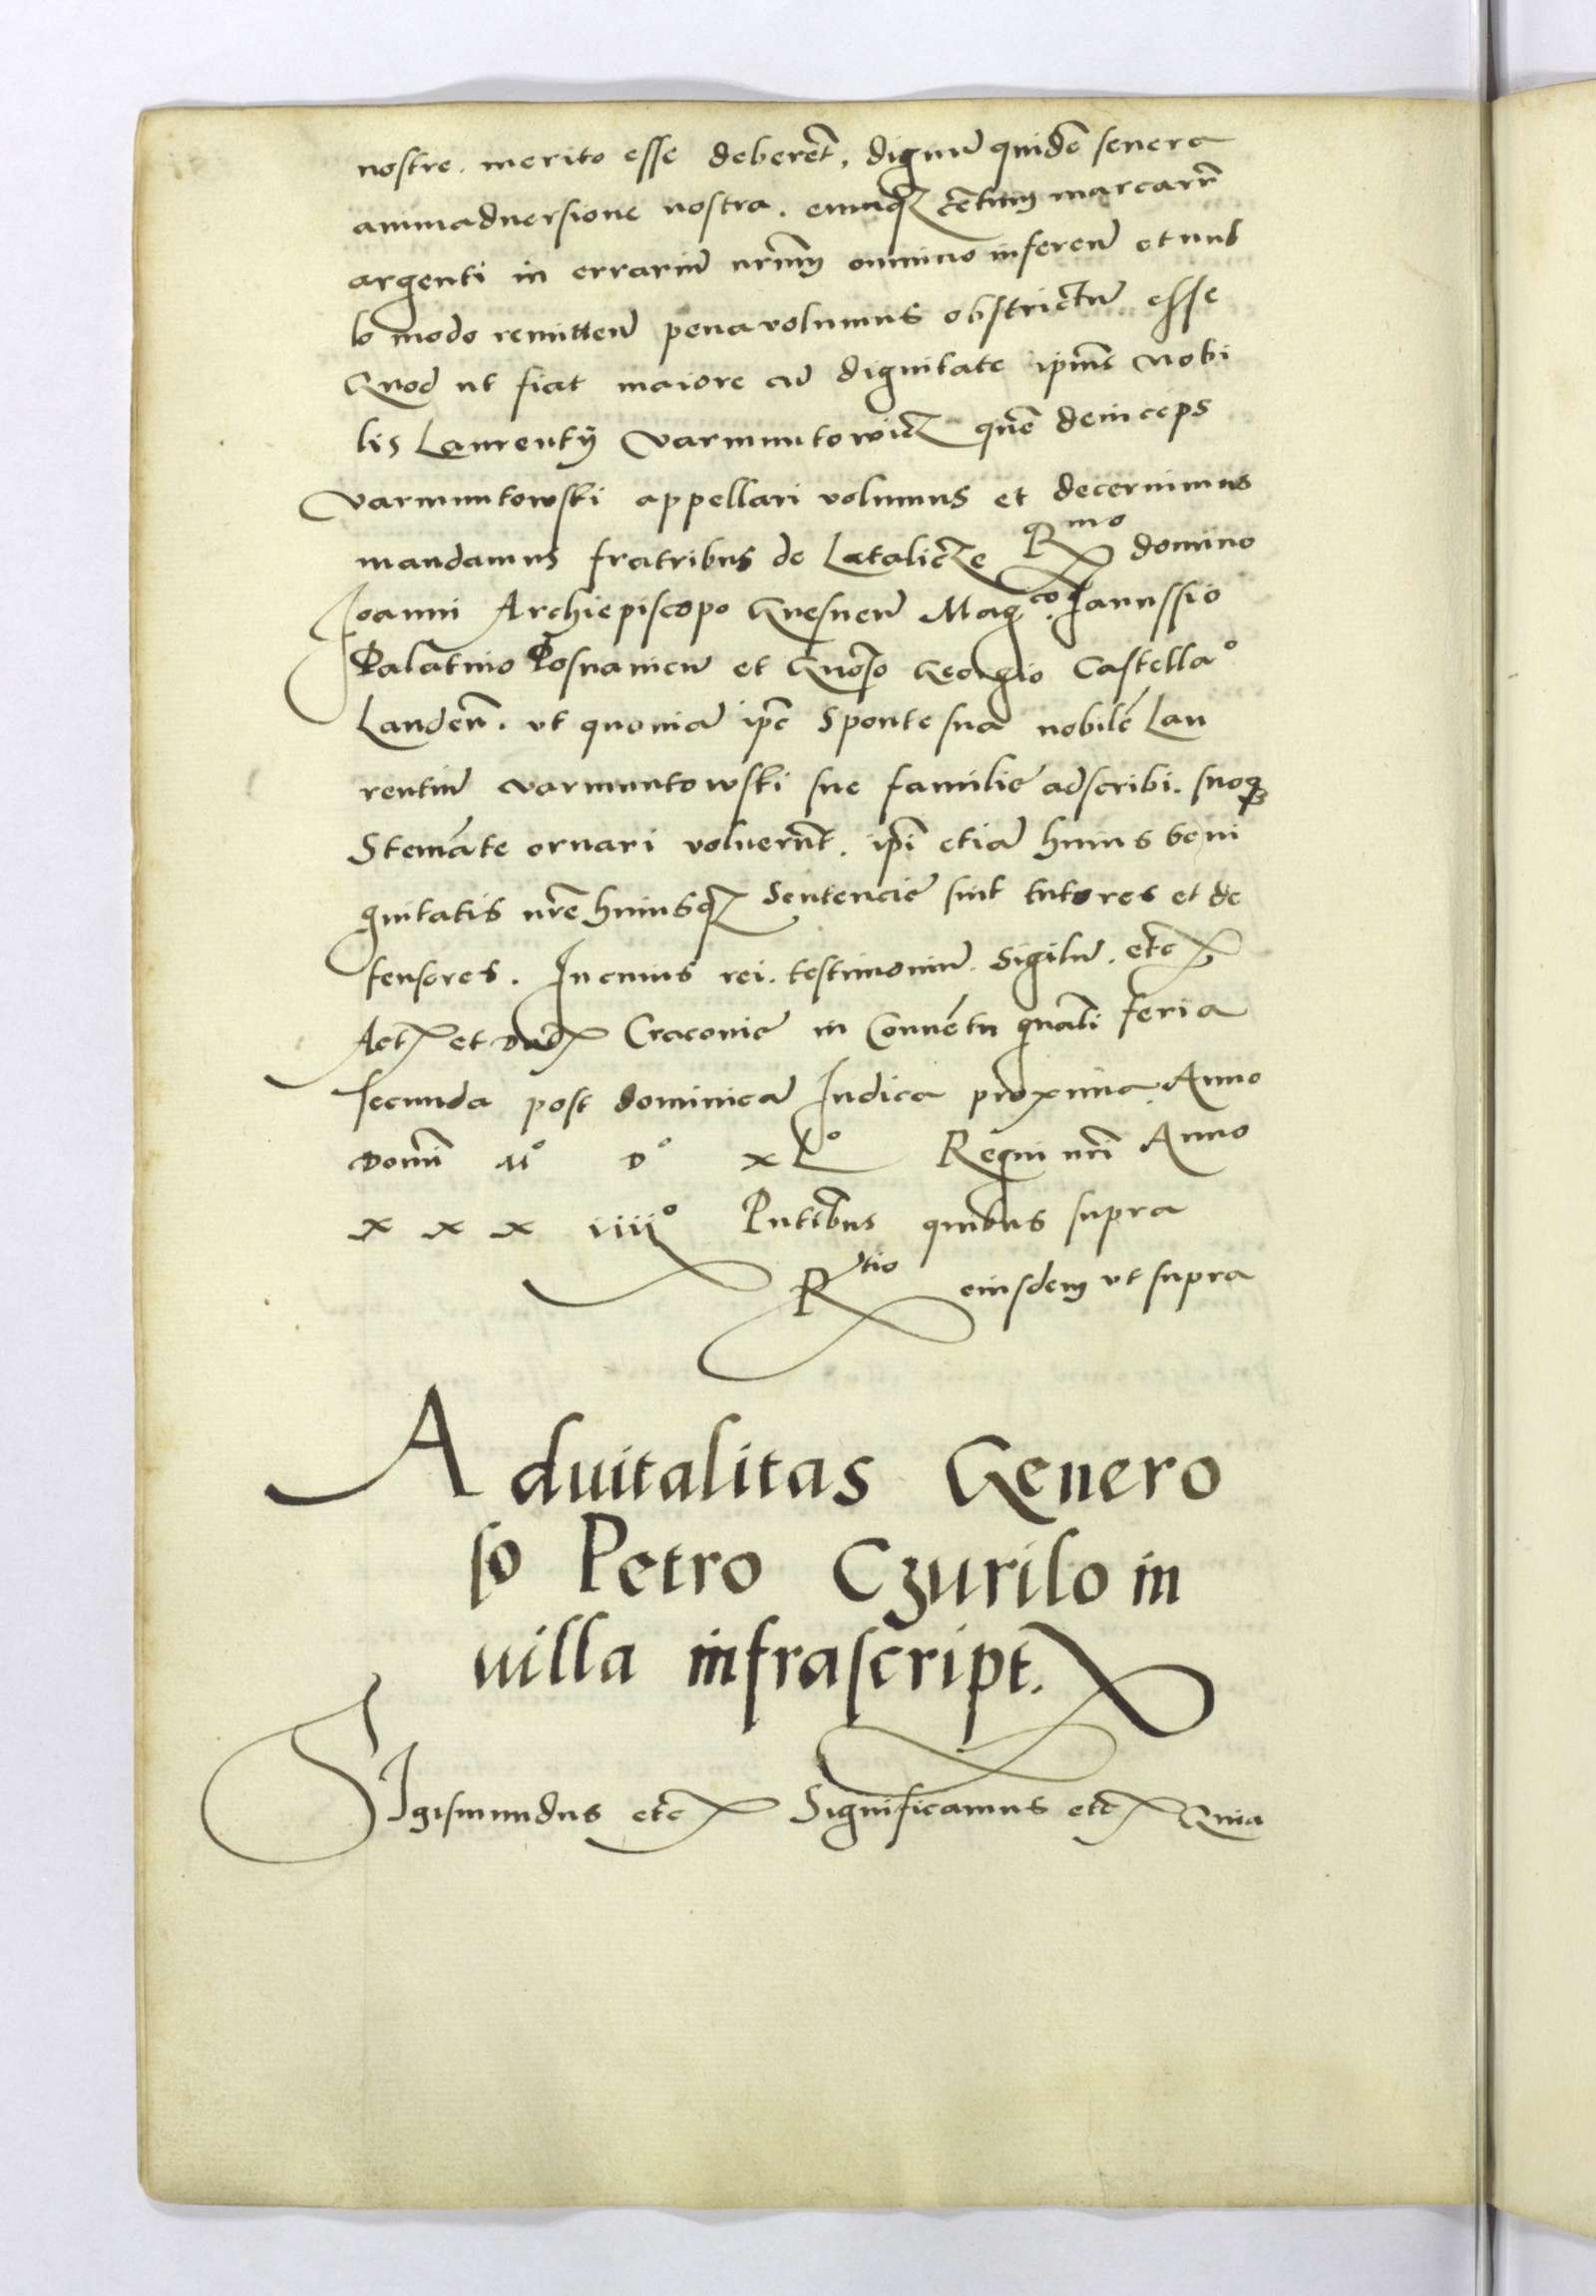 nostre. merito esse deberēt, dignū quidē severa
animadversione nostra. eumq₃ cētum marcarū
argenti in errariū nr̄um omnino inferen̄ et nul
lo modo remitten̄ pena volumus obstrictū esse
Quod ut fiat maiore cū dignitate ip̄ius Nobi
lis Laurentÿ Varmuntowicz quē deinceps
Varmuntowski appellari volumus et decernimus
mandamus fratribus de Latalicze Rmo domino
Joanni Archiepiscopo Gnesnen̄ Magco. Janussio
Palatino Posnanien̄ et Gnōso Georgio Castellao
Landen̄. ut quoniā ip̄e sponte sua nobilē Lau
rentiū Varmuntowski sue familie adscribi. suoq₃
Stemāte ornari voluerūt. ip̄i etiā huius beni
gnitatis nr̄e huiusq₃ Sentencie sint tutores et de
fensores. In cuius rei. testimoniū. Sigilū. etc
Act et Dat Cracovie in Convētu gnāli feria
secunda post dominicā Iudica proxima. Anno
Domī Mo Do XLo Regni nr̄i Anno
x x x iiiio Pn̄tibus quibus supra
Rtio eiusdem ut supra
Aduitalitas Genero
so Petro Czurilo in
uilla infrascript.
SIgismundus etc Significamus etc Quia